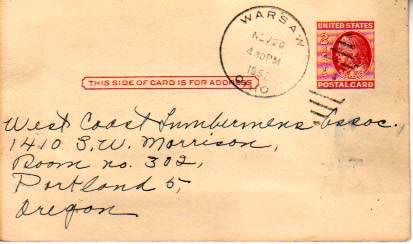 WARSAW
NOV 20
4 30 PM
OHIO
UNITED STATES
POSTAL CARD
THIS SIDE OF CARD IS FOR ADDRESS
West Coast Lumbermens Assoc.
1410 S.W. Morrison,
Room no. 302,
Portland 5,
Oregon